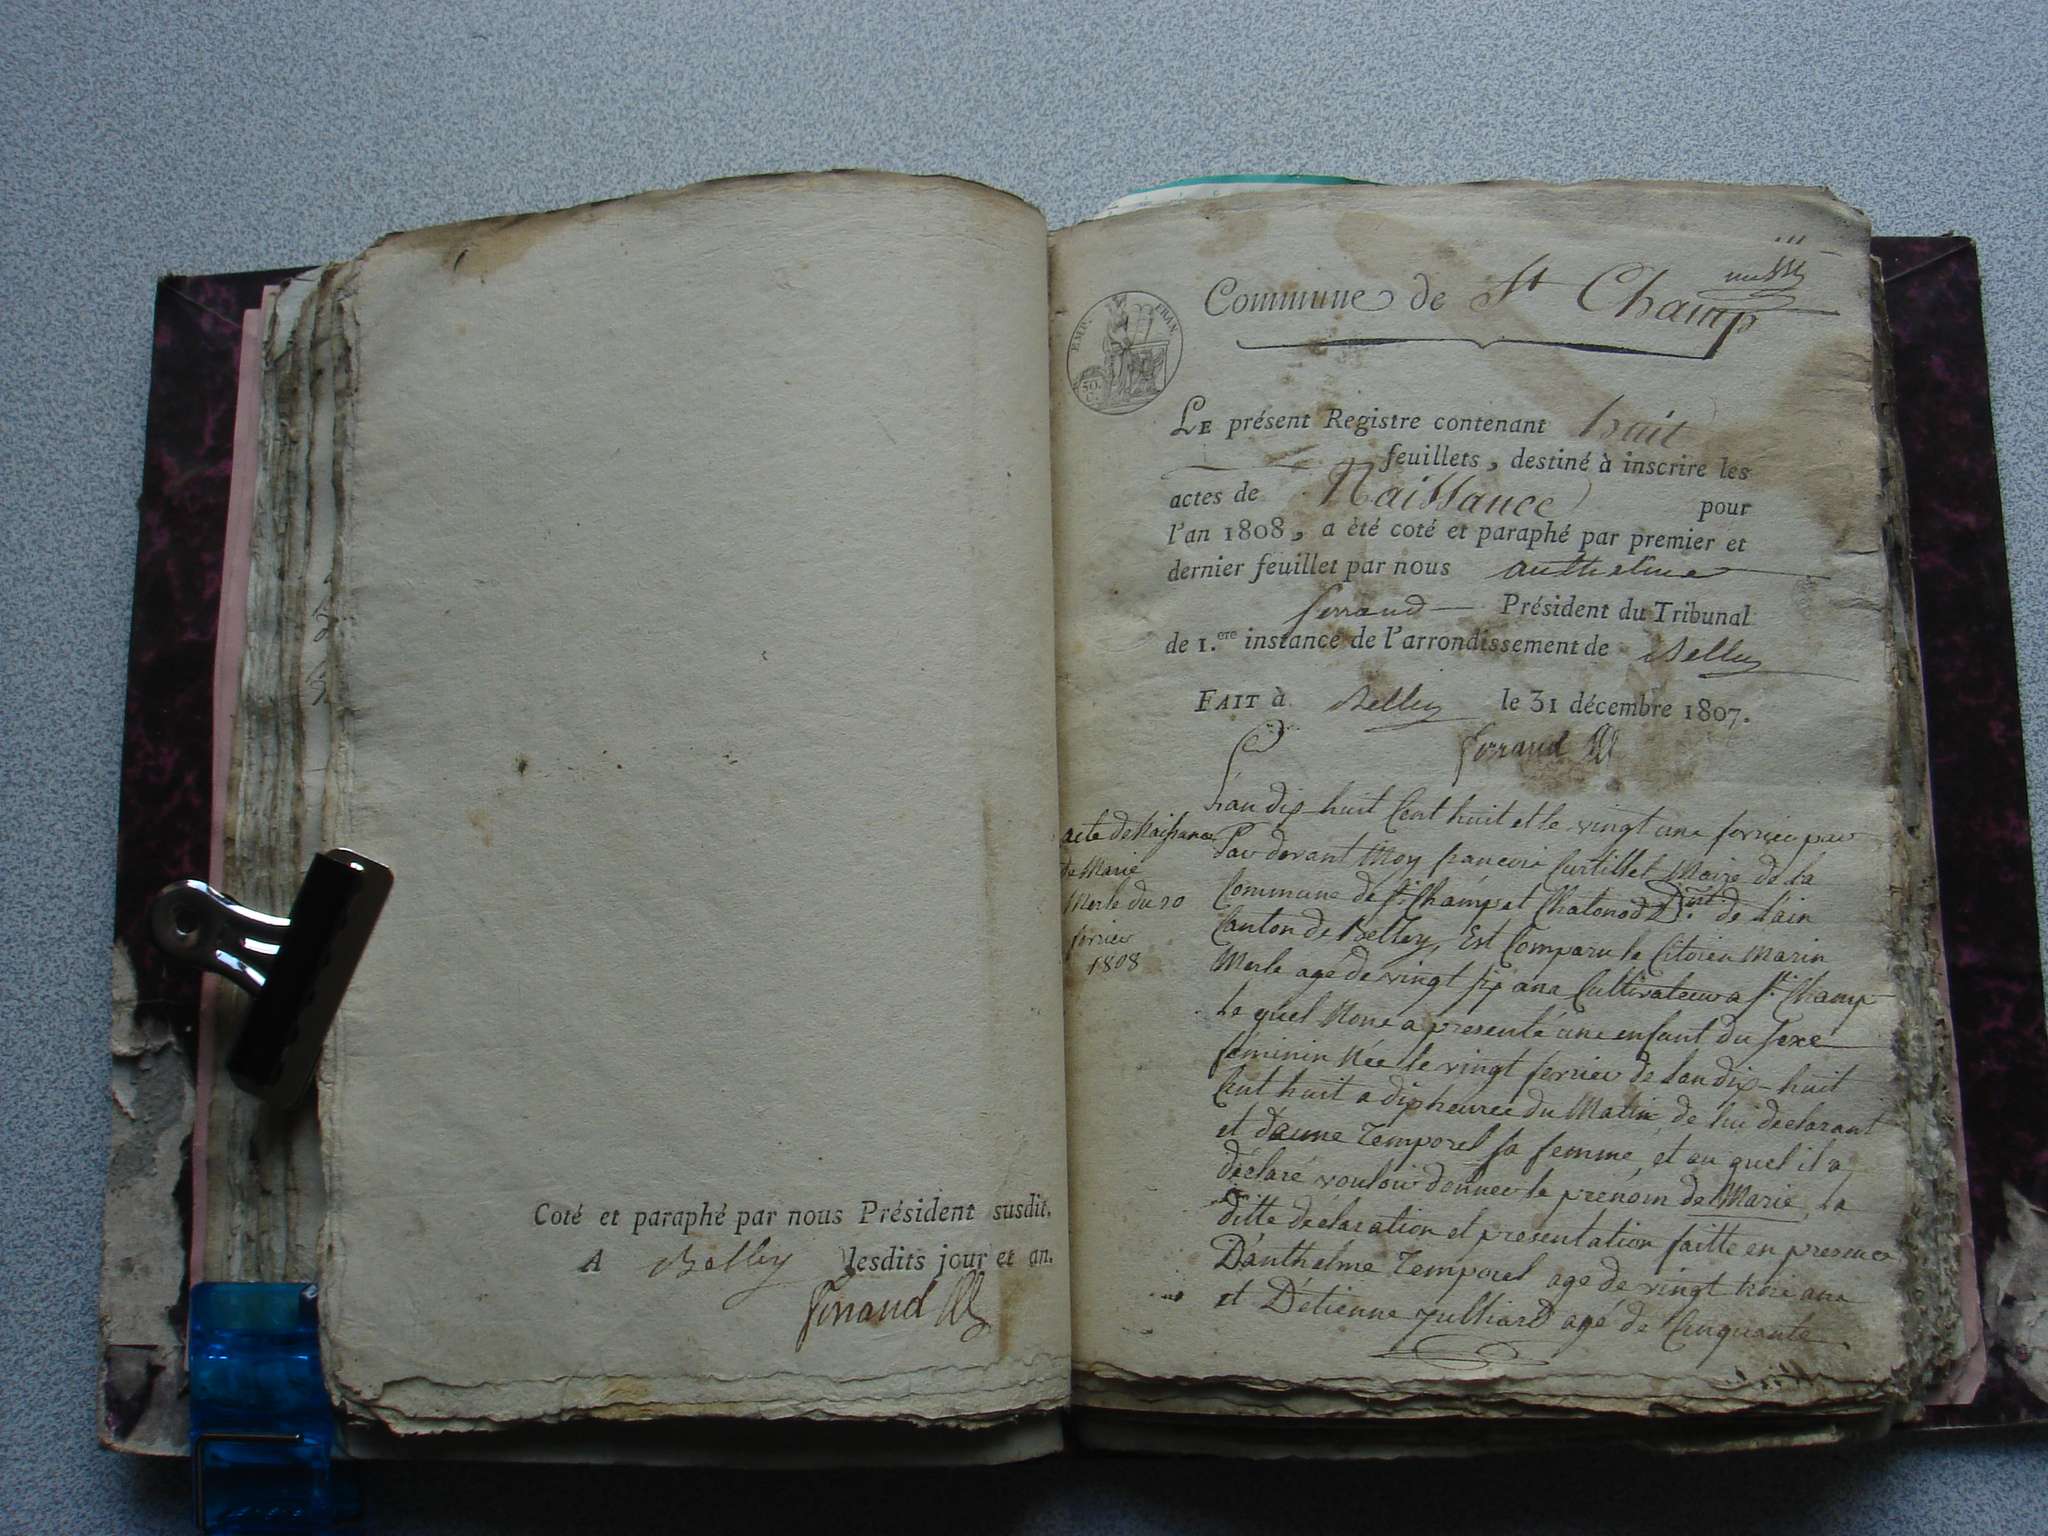 Coté et paraphé par nous Président susdit.
A Belley lesdits jour et an.
Ferrand
Commune de St Champ
EMP. FRAN
50. C.
LE présent Registre contenant huit
feuillets, destiné à inscrire les
actes de Naissance pour
l'an 1808, a été coté et paraphé par premier et
dernier feuillet par nous anthelme
ferrand Président du Tribunal
de 1.ere instance de l'arrondissement de Belley
FAIT à Belley le 31 décembre 1807.
Ferrand
acte de Naissance
de Marie
Merle du 20
fevrier
1808
L'an dix huit Cent huit et le vingt une fevrier
Par devant Moy francois Curtillet Maire de la
Commune de St. Champ et Chatonod D.nt de l'ain
Canton de Belley, Est Comparu le Citoien Marin
Merle agé de vingt six ans Cultivateur a St. Champ
Le quel Nous a presenté une enfant du sexe
feminin Née le vingt fevrier de l'an dix-huit
Cent huit a dix heures du Matin, de lui declarant
et d'aune Temporel sa femme, et au quel il a
déclaré vouloir donner le prénom de Marie, La
ditte déclaration et presentation faitte en presence
D'anthelme Temporel agé de vingt trois ans
et D'etienne Julliard agé de Cinquante